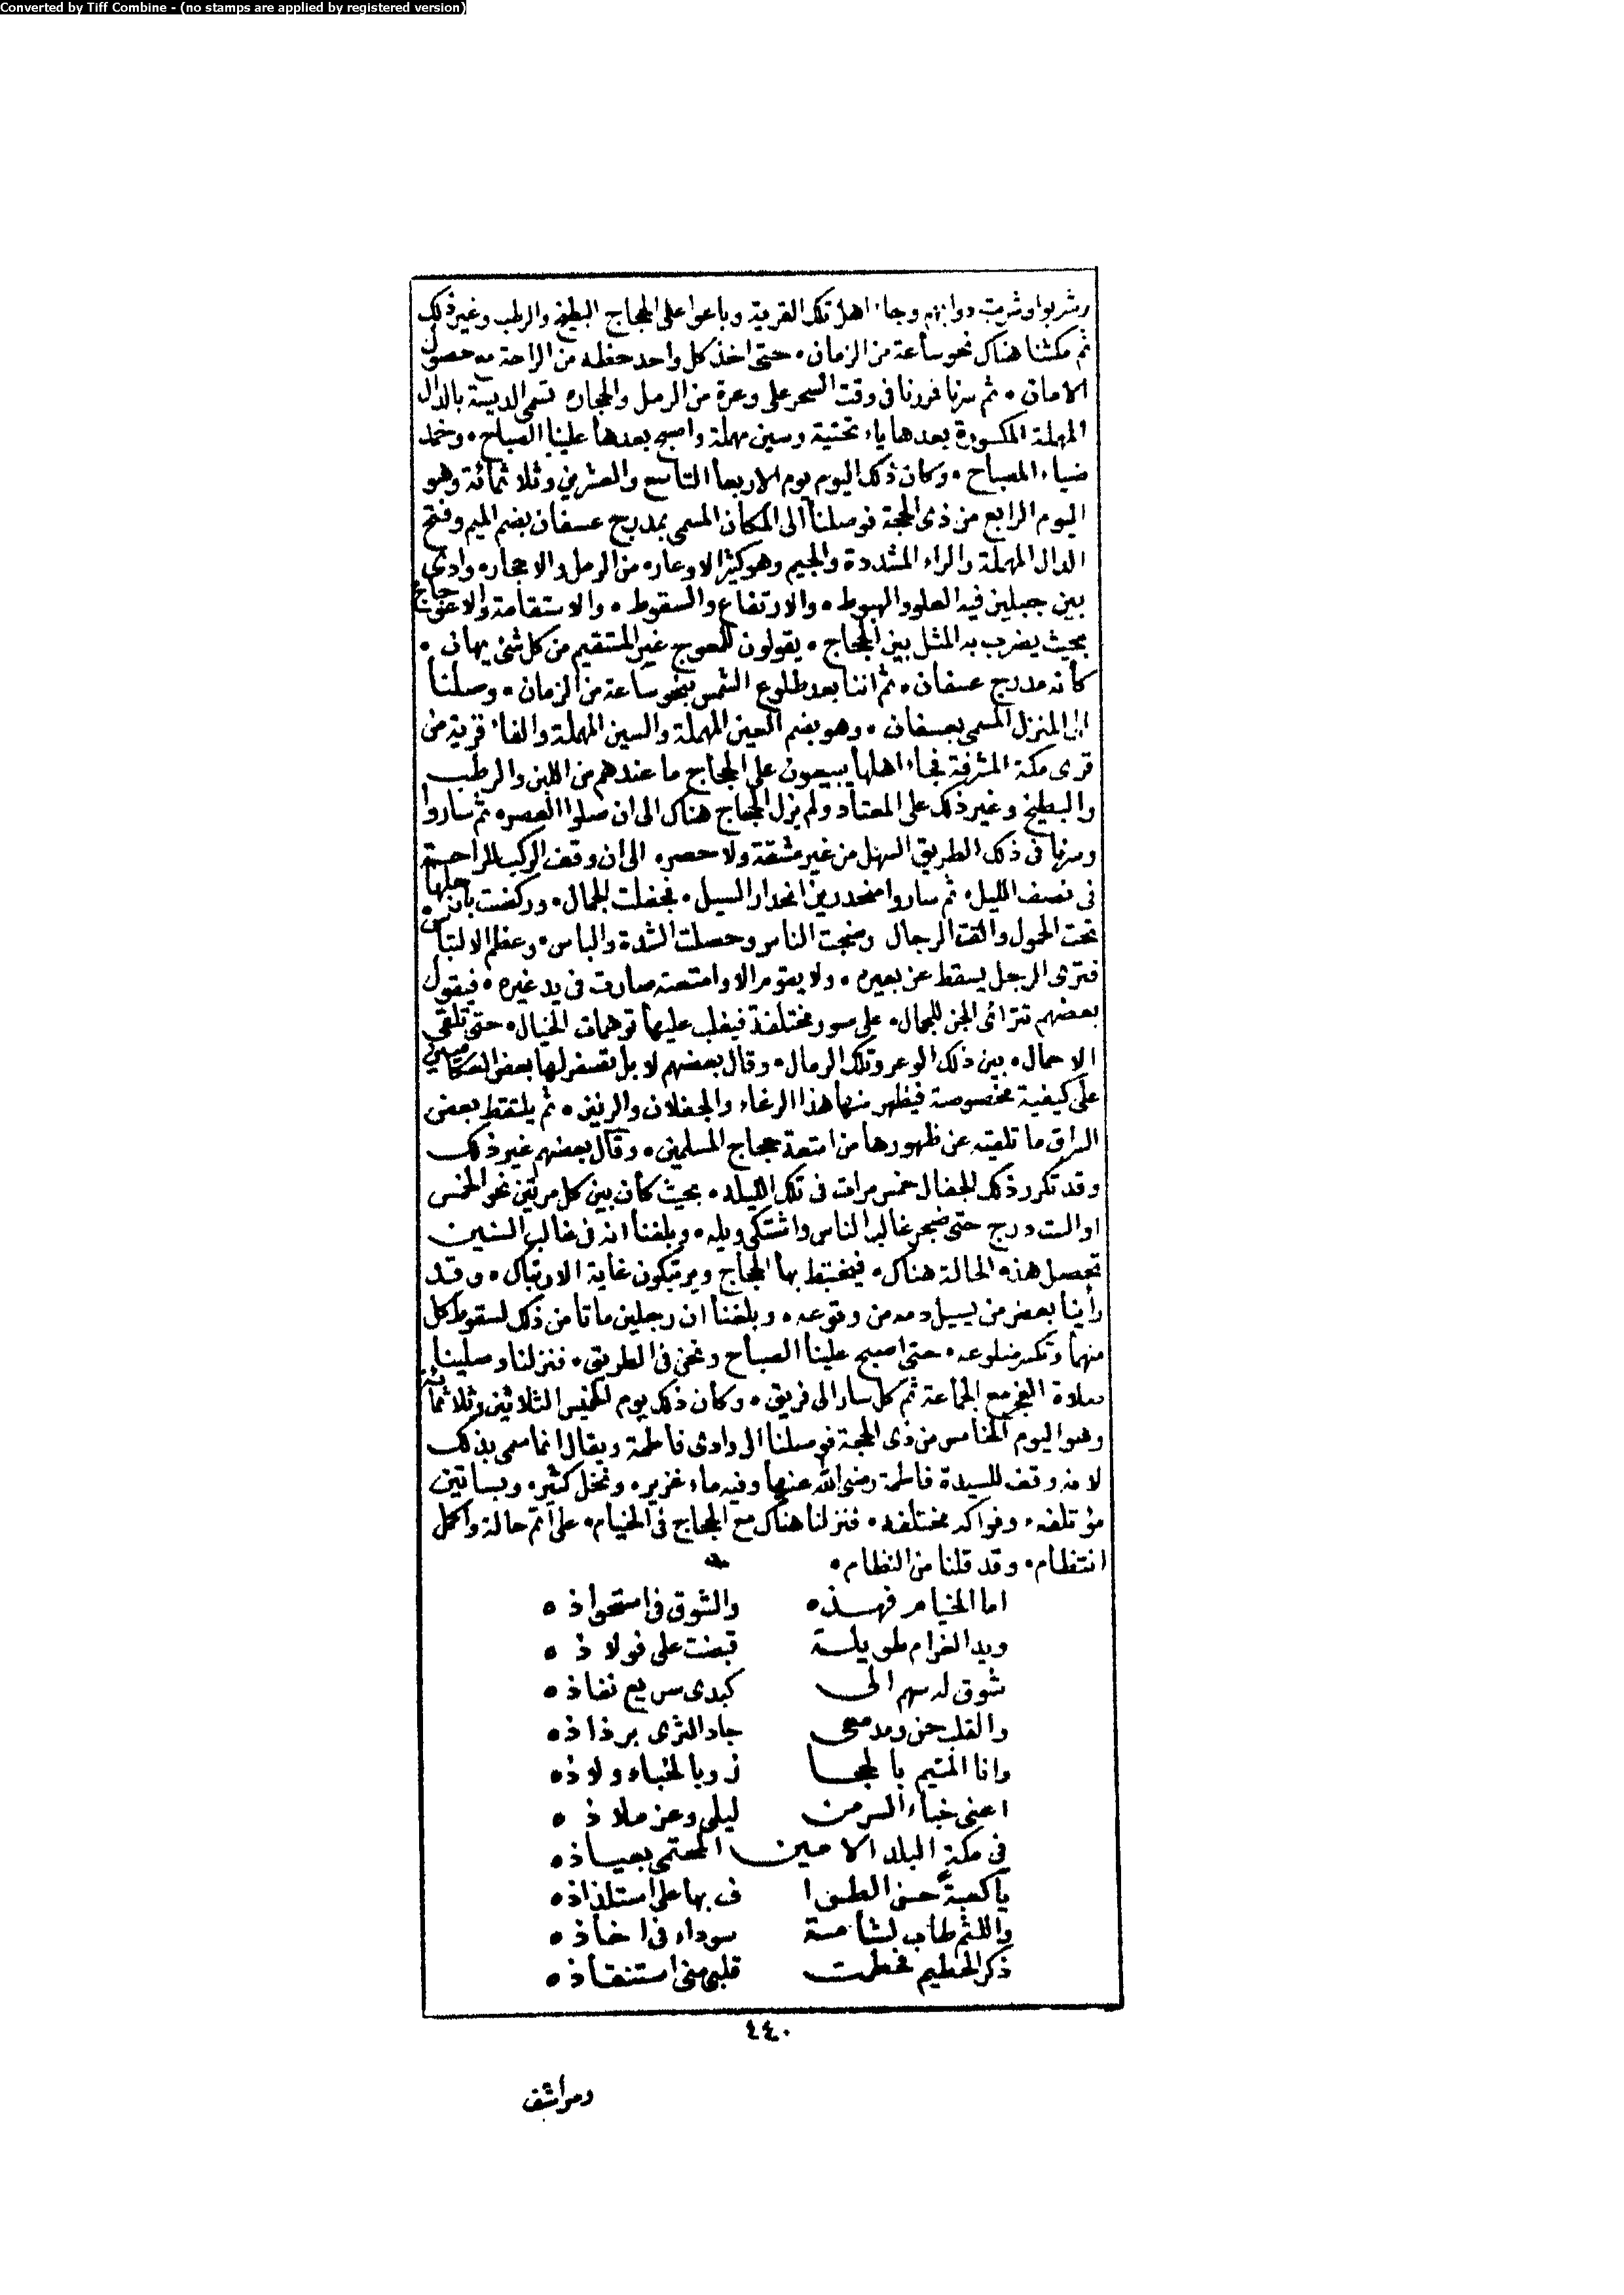 Converted by Tiff Combine - (no stamps are applied by registered version)
وشربوا وشربت دوابهم وجاء اهل تلك القرية وباعوا على الحجاج البطيخ والرطب وغير ذلك
ثم مكثنا هناك نحو ساعة من الزمان ٠ حتى اخذ كل واحد حظه من الراحة مع حصول
الامان ٠ ثم سرنا فمررنا فى وقت السحر على وعرة من الرمل والحجاره تسمى الديسة بالدال
المهملة المكسورة بعدها ياء تحتية وسين مهملة واصبح بعدها علينا الصباح ٠ وخمد
ضياء المصباح ٠ وكان ذلك اليوم يوم الاربعا التاسع والعشرين وثلاثمائة وهو
اليوم الرابع من ذى الحجة فوصلنا الى المكان المسمى بمدرج عسفان بضم الميم وفتح
الدال المهملة والراء المشددة والجيم وهو كثير الاوعار ٠ من الرمل والاحجار ٠ وادى
بين جبلين فيه العلو والهبوط ٠ والارتفاع والسقوط ٠ والاستقامة والاعوجاج
بحيث يضرب به المثل بين الحجاج ٠ يقولون للمعوج غير المستقيم من كل شئ يهان ٠
كأنه مدرج عسفان ٠ ثم اننا بعد طلوع الشمس بنحو ساعة من الزمان ٠ وصلنا
الى المنزل المسمى بعسفان ٠ وهو بضم العين المهملة والسين المهملة والفاء قرية من
قرى مكة المشرفة فجاء اهلها يبيعون على الحجاج ما عندهم من اللبن والرطب
والبطيخ وغير ذلك على المعتاد ولم يزل الحجاج هناك الى ان صلوا العصر ٠ ثم ساروا
وسرنا فى ذلك الطريق السهل من غير مشقة ولا حصر ٠ الى ان وقف الركب للراحة
فى نصف الليل ٠ ثم ساروا منحدرين انحدار السيل ٠ فجفلت الجمال ٠ وركضت بأرجلها
تحت الحمول والقت الرجال وضجت الناس وحصلت الشدة والباس ٠ وعظم الالتباس ٠
فترى الرجل يسقط عن بعيره ٠ ولا يقوم الا وامتعته صارت فى يد غيره ٠ فيقول
بعضهم تترائى الجن للجمال ٠ على صور مختلفة فيغلب عليها توهمات الخيال ٠ حتى تلقى
الاحمال ٠ بين ذلك الوعر وتلك الرمال ٠ وقال بعضهم لا بل تصفر لها بعض العكامين
على كيفية مخصوصة فيظهر منها هذا الرغاء والجفلان والرنين ٠ ثم يلتقط بعض
السراق ما تلقيه عن ظهورها من امتعة حجاج المسلمين ٠ وقال بعضهم غير ذلك
وقد تكرر ذلك الجفال خمس مرات فى تلك الليله ٠ بحيث كان بين كل مرتين نحو الخمس
او الست درج حتى ضجر غالب الناس واشتكى ويله ٠ وبلغنا انه فى غالب السنين
تحصل هذه الحالة هناك ٠ فيختبط بها الحجاج ويرتبكون غاية الارتباك ٠ وقد
رأينا بعض من يسيل دمه من وقوعه ٠ وبلغنا ان رجلين ماتا من ذلك لسقوط كل
منهما وتكسر ضلوعه ٠ حتى اصبح علينا الصباح ونحن فى الطريق ٠ فنزلنا وصلينا
صلاة الفجر مع الجماعة ثم كل سار الى فريق ٠ وكان ذلك يوم الخميس الثلاثين وثلاثمائة
وهو اليوم الخامس من ذى الحجة فوصلنا الى وادى فاطمة ويقال انما سمى بذلك
لانه وقف للسيدة فاطمة رضى الله عنها وفيه ماء غزير ٠ ونخل كثير ٠ وبساتين
مؤتلفه ٠ وفواكه مختلفه ٠ فنزلنا هناك مع الحجاج فى الخيام ٠ على اتم حالة واكمل
انتظام ٠ وقد قلنا من النظام ٠
اما الخيام فهذه ٠ والشوق فى استحواذه
ويد الغرام طويلة قبضت على فولاذه
شوق له سهم الى كبدى سريع نفاذه
والقلب حن ومدمعى جاد الثرى برذاذه
وانا المتيم بالحجا زوبا لخباء ولاذه
اعنى خباء السر من ليلى وعز ملاذه
فى مكة البلد الامين المحتمى بعياذه
يا كعبة حسن الطوا ف بها على استلذاذه
واللثم طاب لشامة سوداء فى اخاذه
ذكر الحطيم فحطمت قلبى منى استنقاذه
٤٤٠
ومراشف